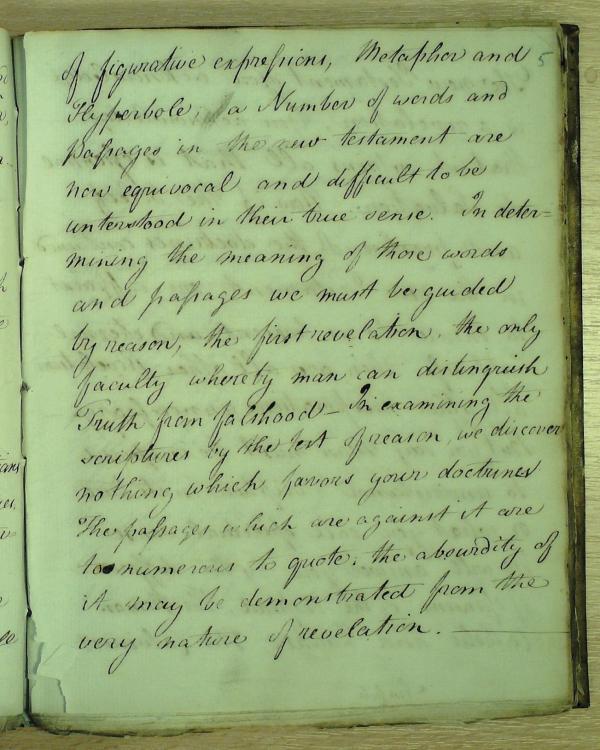 of figurative expressions, Metaphor and
5
Hyperbole; a Number of words and
passages in the new testament are
now equivocal and difficult to be
unterstood in their true sense. In deter=
mining the meaning of those words
and passages we must be guided
by reason, the first revelation, the only
faculty whereby man can distinguish
Truth from falshood – In examining the
scriptures by the test of reason, we discover
nothing which favors your doctrines
The passages which are against it are
to numerous to quote; the absurdity of
it may be demonstrated from the
very nature of revelation. —